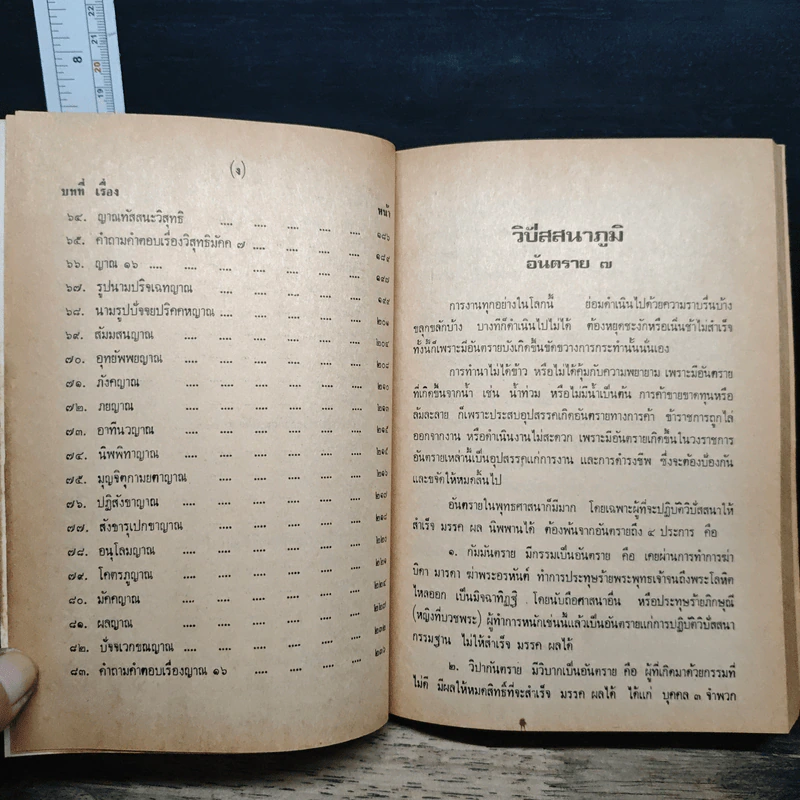 (ง)
บทที่ เรื่อง หน้า
๖๔. ญาณทัสสนะวิสุทธิ .... .... .... .... ๑๘๖
๖๕. คำถามคำตอบเรื่องวิสุทธิมัคค ๗ .... .... .... ๑๘๙
๖๖. ญาณ ๑๖ .... .... .... .... .... ๑๙๘
๖๗. รูปนามปริจเฉทญาณ .... .... .... .... ๑๙๙
๖๘. นามรูปปัจจยปริคคหญาณ .... .... .... .... ๒๐๑
๖๙. สัมมสนญาณ .... .... .... .... .... ๒๐๔
๗๐. อุทยัพพยญาณ .... .... .... .... ....
๗๑. ภังคญาณ .... .... .... .... .... ๒๑๐
๗๒. ภยญาณ .... .... .... .... .... ๒๑๓
๗๓. อาทีนวญาณ .... .... .... .... .... ๒๑๕
๗๔. นิพพิทาญาณ .... .... .... .... .... ๒๑๕
๗๕. มุญจิตุกามยตาญาณ .... .... .... .... ๒๑๖
๗๖. ปฏิสังขาญาณ .... .... .... .... .... ๒๑๗
๗๗. สังขารุเปกขาญาณ .... .... .... .... ๒๑๘
๗๘. อนุโลมญาณ .... .... .... .... .... ๒๒๐
๗๙. โคตรภูญาณ .... .... .... .... ....
๘๐. มัคคญาณ .... .... .... .... .... ๒๒๔
๘๑. ผลญาณ .... .... .... .... ....
๘๒. ปัจจเวกขณญาณ .... .... .... .... ....
๘๓. คำถามคำตอบเรื่องญาณ ๑๖ .... .... .... ๒๓๖
วิปัสสนาภูมิ
อันตราย ๗
การงานทุกอย่างในโลกนี้ ย่อมดำเนินไปด้วยความราบรื่นบ้าง
ขลุกขลักบ้าง บางทีก็ดำเนินไปไม่ได้ ต้องหยุดชะงักหรือเนิ่นช้าไม่สำเร็จ
ทั้งนี้ก็เพราะมีอันตรายบังเกิดขึ้นขัดขวางการกระทำนั้นนั่นเอง
การทำนาไม่ได้ข้าว หรือไม่ได้คุ้มกับความพยายาม เพราะมีอันตราย
ที่เกิดขึ้นจากน้ำ เช่น น้ำท่วม หรือไม่มีน้ำเป็นต้น การค้าขายขาดทุนหรือ
ล้มละลาย ก็เพราะประสบอุปสรรคเกิดอันตรายทางการค้า ข้าราชการถูกไล่
ออกจากงาน หรือดำเนินงานไม่สะดวก เพราะมีอันตรายเกิดขึ้นในวงราชการ
อันตรายเหล่านี้เป็นอุปสรรคแก่การงาน และการดำรงชีพ ซึ่งจะต้องป้องกัน
และขจัดให้หมดสิ้นไป
อันตรายในพุทธศาสนาก็มีมาก โดยเฉพาะผู้ที่จะปฏิบัติวิปัสสนาให้
สำเร็จ มรรค ผล นิพพานได้ ต้องพ้นจากอันตรายถึง ๔ ประการ คือ
๑. กัมมันตราย มีกรรมเป็นอันตราย คือ เคยผ่านการทำการฆ่า
บิดา มารดา ฆ่าพระอรหันต์ ทำการประทุษร้ายพระพุทธเจ้าจนถึงพระโลหิต
ไหลออก เป็นมิจฉาทิฏฐิ โดยนับถือศาสนาอื่น หรือประทุษร้ายภิกษุณี
(หญิงที่บวชพระ) ผู้ทำการหนักเช่นนี้แล้วเป็นอันตรายแก่การปฏิบัติวิปัสสนา
กรรมฐาน ไม่ให้สำเร็จ มรรค ผลได้
๒. วิปากันตราย มีวิบากเป็นอันตราย คือ ผู้ที่เกิดมาด้วยกรรมที่
ไม่ดี มีผลให้หมดสิทธิ์ที่จะสำเร็จ มรรค ผลได้ ได้แก่ บุคคล ๓ จำพวก